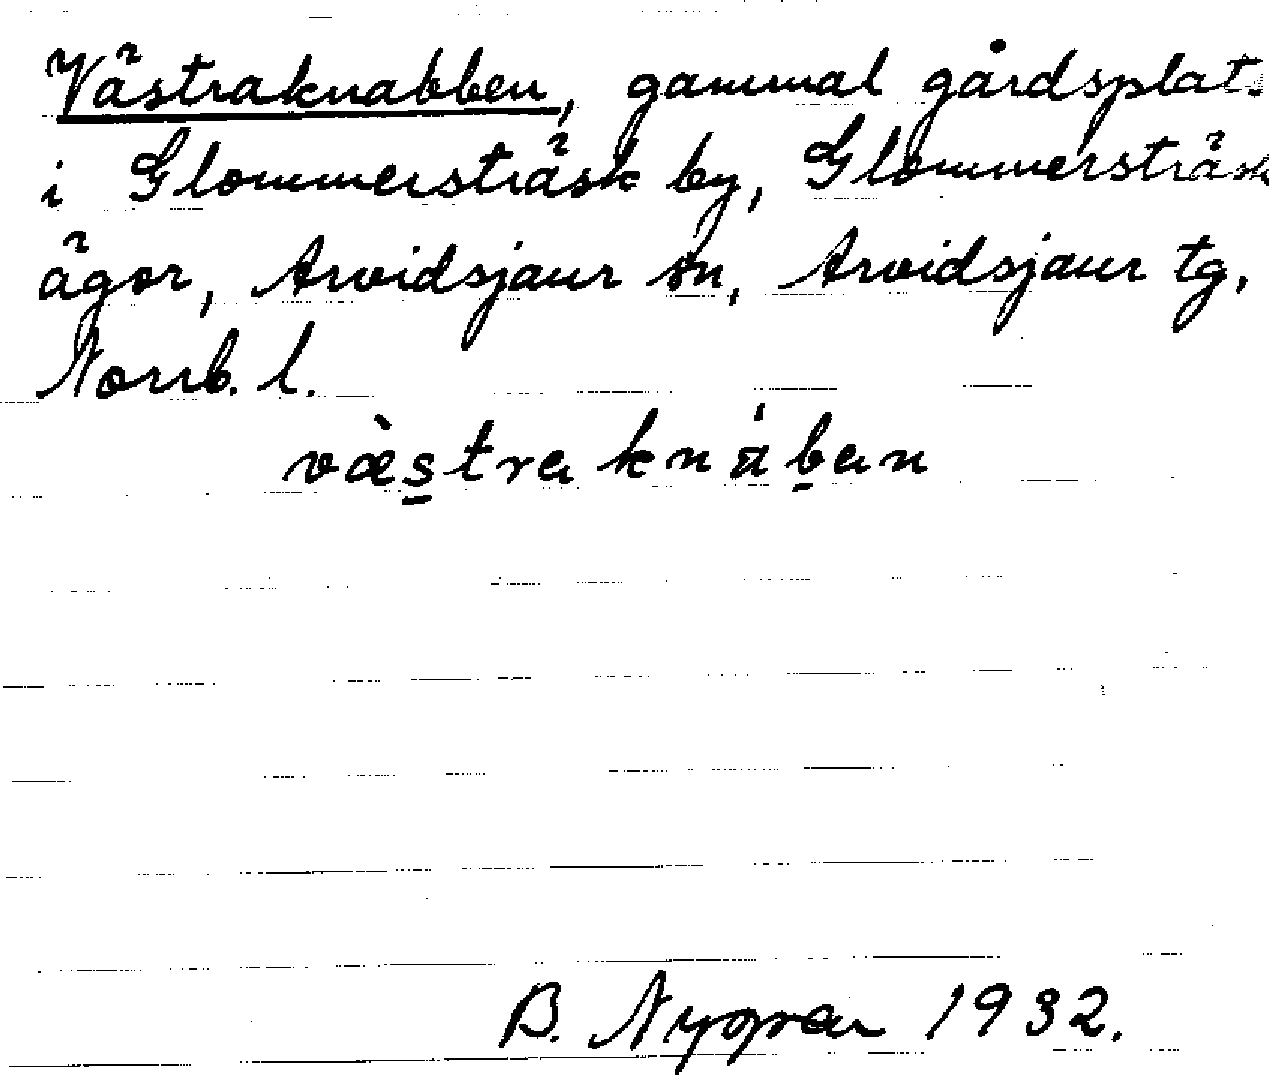 Västraknabben, gammal gårdsplats
i Glommersträsk by, Glommersträsk
ägor, Arvidsjaur sn, Arvidsjaur tg,
Norrb. l.
væ̀s̱traknáḇan
B. Nygren 1932.